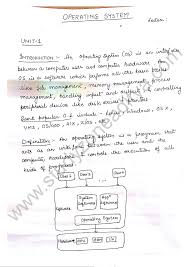 OPERATING SYSTEM
UNIT-1
Introduction - An Operating System (OS) is an interface
between a computer user and computer hardware.
OS is a software which performs all the basic tasks
like file management, memory management, process
management, handling input and output & controlling
peripheral devices like disk drives & printers.
Some popular O.S include - Linux, Windows, OS X,
VMS, OS/400, AIX, z/OS, etc.
Definition - An operating system is a program that
acts as an interface between the user and the
computer hardware & controls the execution of all
kinds of programs.
User 1 User 2 User n
Software System Software Appn Software
Operating System
Hardware CPU RAM I/O